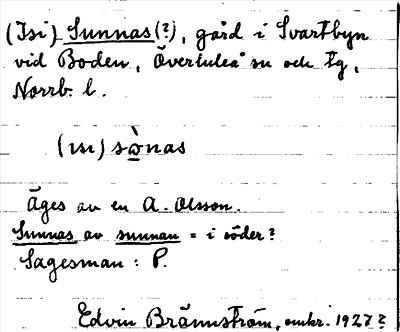 (Isi) Sunnas (?), gård i Svartbyn
vid Boden, Överluleå sn och tg,
Norrb. l.
(ısı) sònas
Äges av en A. Olsson.
Sunnas av sunnan = i söder?
Sagesman: P.
Edvin Brännström, omkr. 1927?